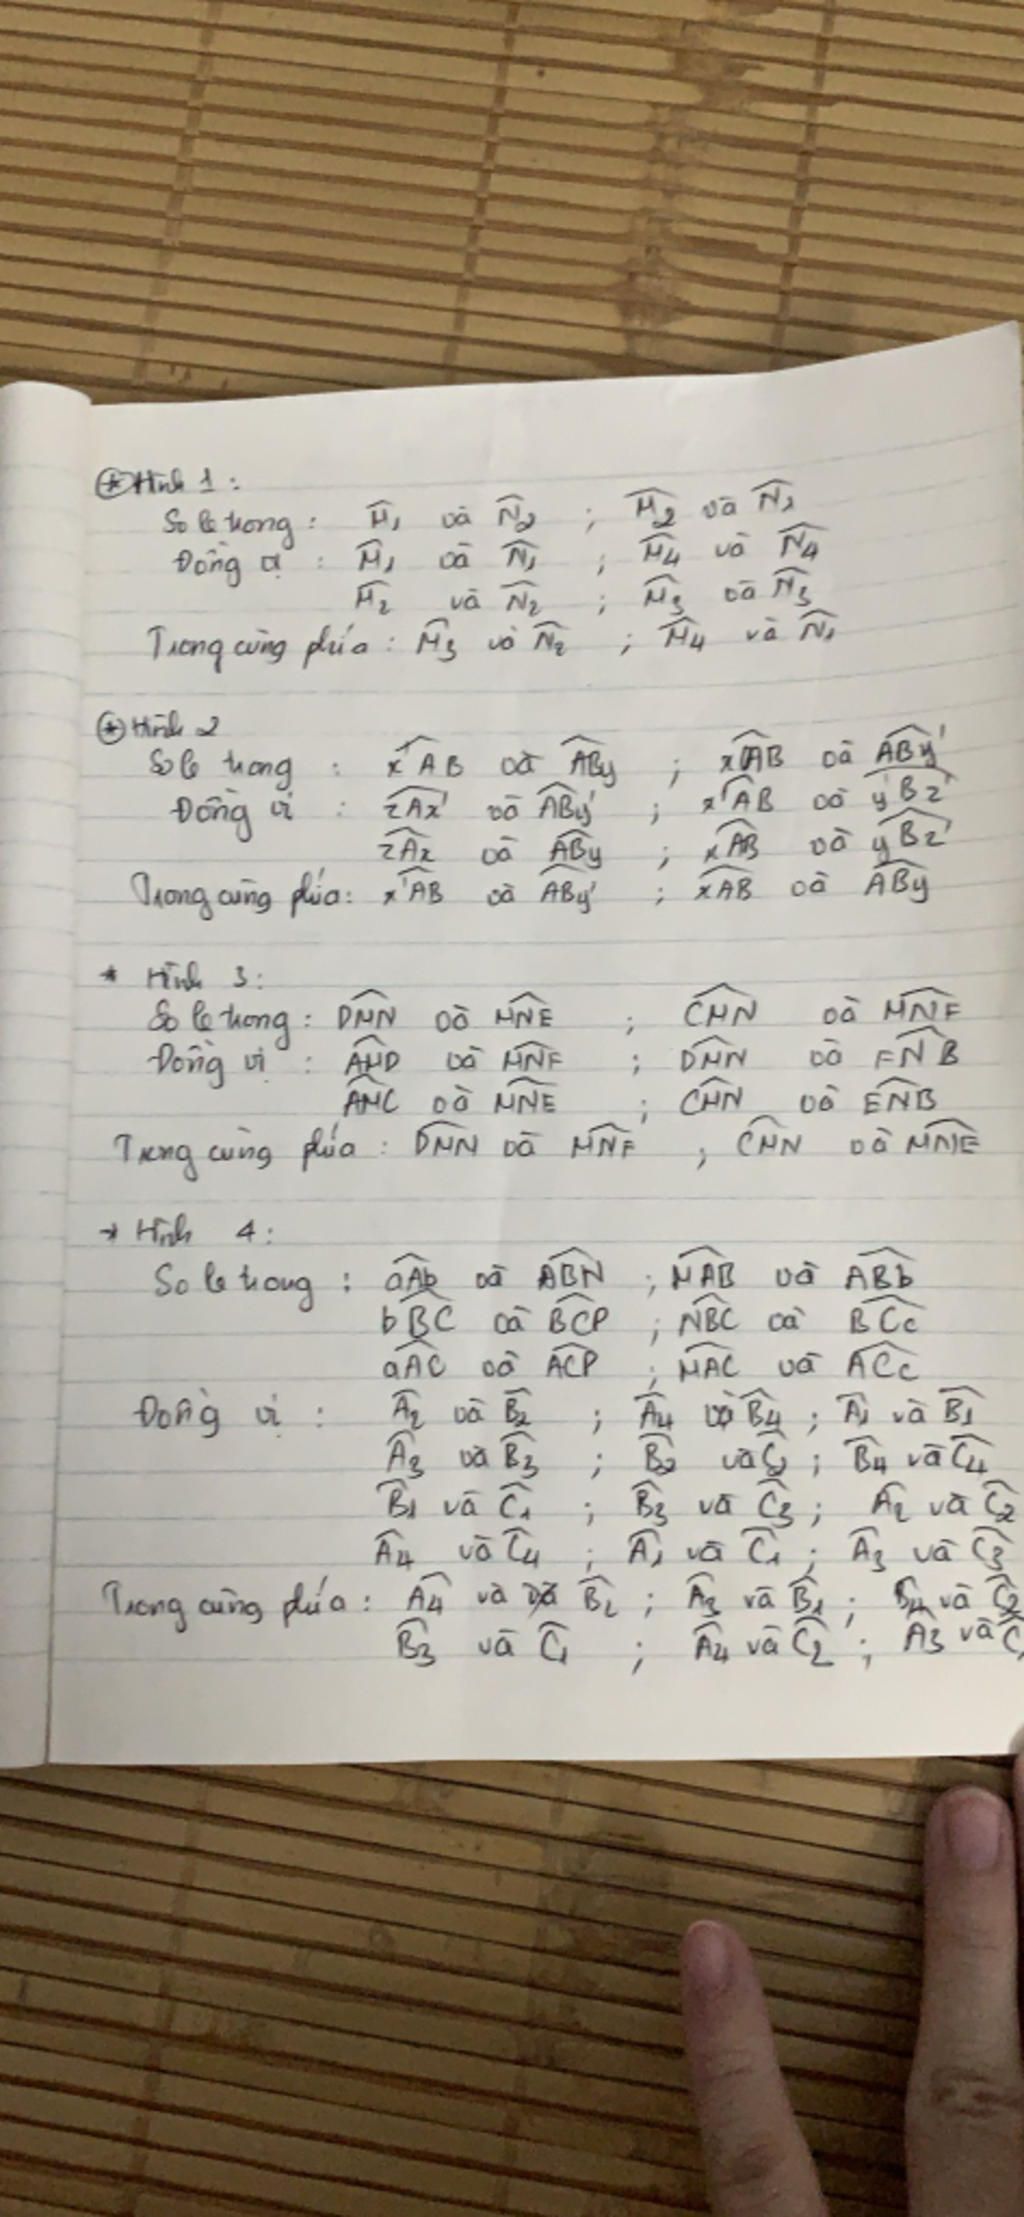 * Hình 1 :
So le trong : M̂₁ và N̂₂ ; M̂₂ và N̂₁
Đồng vị : M̂₁ và N̂₁ ; M̂₄ và N̂₄
M̂₂ và N̂₂ ; M̂₃ và N̂₃
Trong cùng phía : M̂₃ và N̂₂ ; M̂₄ và N̂₁
* Hình 2
So le trong : x'AB và ABy ; xAB và ABy'
Đồng vị : zAx' và ABy' ; x'AB và y'Bz'
zAx và ABy ; xAB và yBz'
Trong cùng phía : x'AB và ABy' ; xAB và ABy
* Hình 3 :
So le trong : DMN và MNE ; CMN và MNF
Đồng vị : AMD và MNF ; DMN và FNB
AMC và MNE ; CMN và ENB
Trong cùng phía : DMN và MNF ; CMN và MNE
* Hình 4 :
So le trong : aAb và ABN ; MAB và ABb
bBC và BCP ; NBC và BCc
aAC và ACP ; MAC và ACc
Đồng vị : Â₂ và B̂₂ ; Â₄ và B̂₄ ; Â₁ và B̂₁
Â₃ và B̂₃ ; B̂₂ và Ĉ₂ ; B̂₄ và Ĉ₄
B̂₁ và Ĉ₁ ; B̂₃ và Ĉ₃ ; Â₂ và Ĉ₂
Â₄ và Ĉ₄ ; Â₁ và Ĉ₁ ; Â₃ và Ĉ₃
Trong cùng phía : Â₄ và B̂₂ ; Â₃ và B̂₁ ; B̂₄ và Ĉ₂
B̂₃ và Ĉ₁ ; Â₄ và Ĉ₂ ; Â₃ và Ĉ